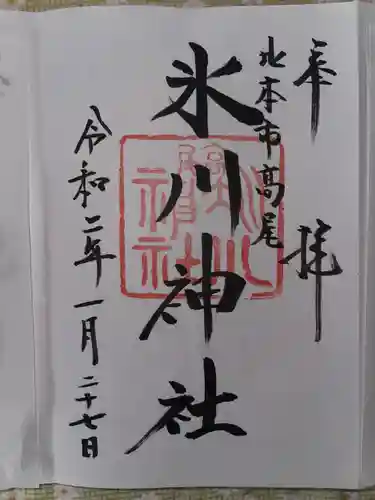 奉拝
北本市高尾
氷川神社
令和二年一月二十七日